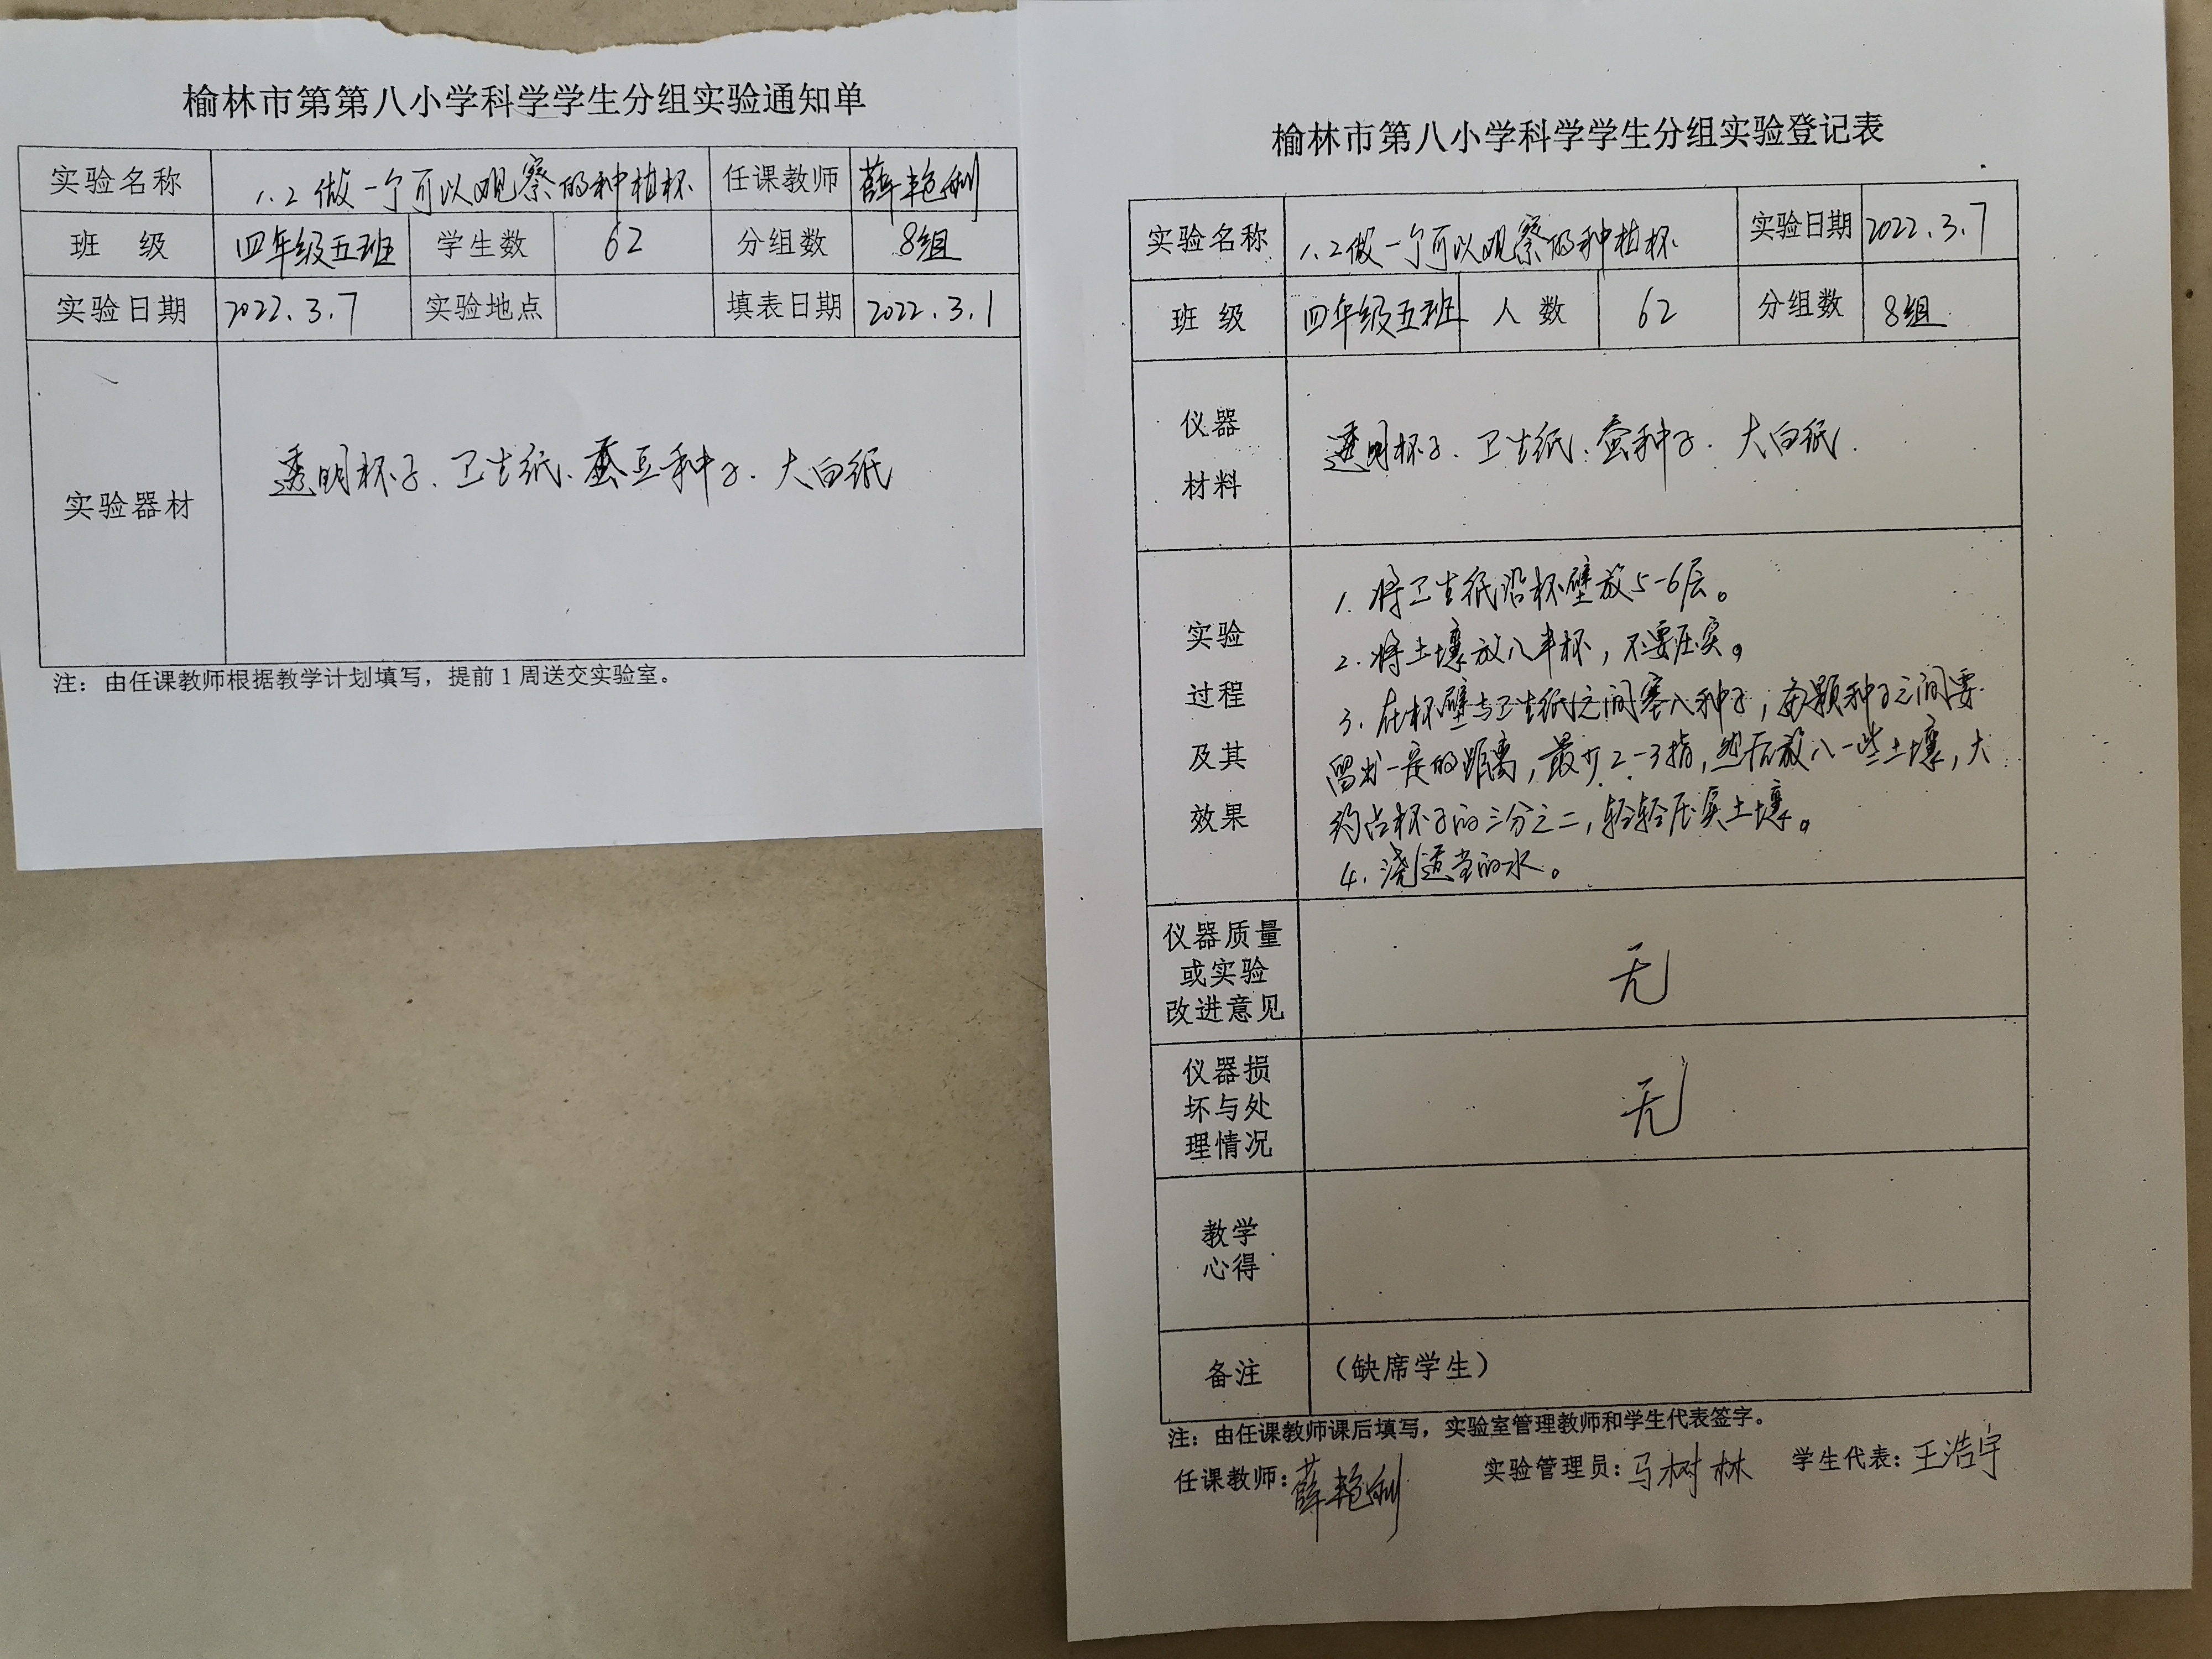 榆林市第第八小学科学学生分组实验通知单
实验名称 1.2 做一个可以观察的种植杯 任课教师 薛艳利
班 级 四年级五班 学生数 62 分组数 8组
实验日期 2022.3.7 实验地点 填表日期 2022.3.1
实验器材 透明杯子、卫生纸、蚕豆种子、大白纸
注：由任课教师根据教学计划填写，提前1周送交实验室。
榆林市第八小学科学学生分组实验登记表
实验名称 1.2做一个可以观察的种植杯 实验日期 2022.3.7
班 级 四年级五班 人 数 62 分组数 8组
仪器
材料
透明杯子、卫生纸、蚕种子、大白纸.
实验
过程
及其
效果
1. 将卫生纸沿杯壁放5-6层。
2. 将土壤放入半杯，不要压实。
3. 在杯壁与卫生纸之间塞入种子，每颗种子之间要
留出一定的距离，最少2-3指，然后放入一些土壤，大
约占杯子的三分之二，轻轻压实土壤。
4. 浇适当的水。
仪器质量
或实验
改进意见
无
仪器损
坏与处
理情况
无
教学
心得
备注 （缺席学生）
注：由任课教师课后填写，实验室管理教师和学生代表签字。
任课教师：薛艳利 实验管理员：马树林 学生代表：王浩宇